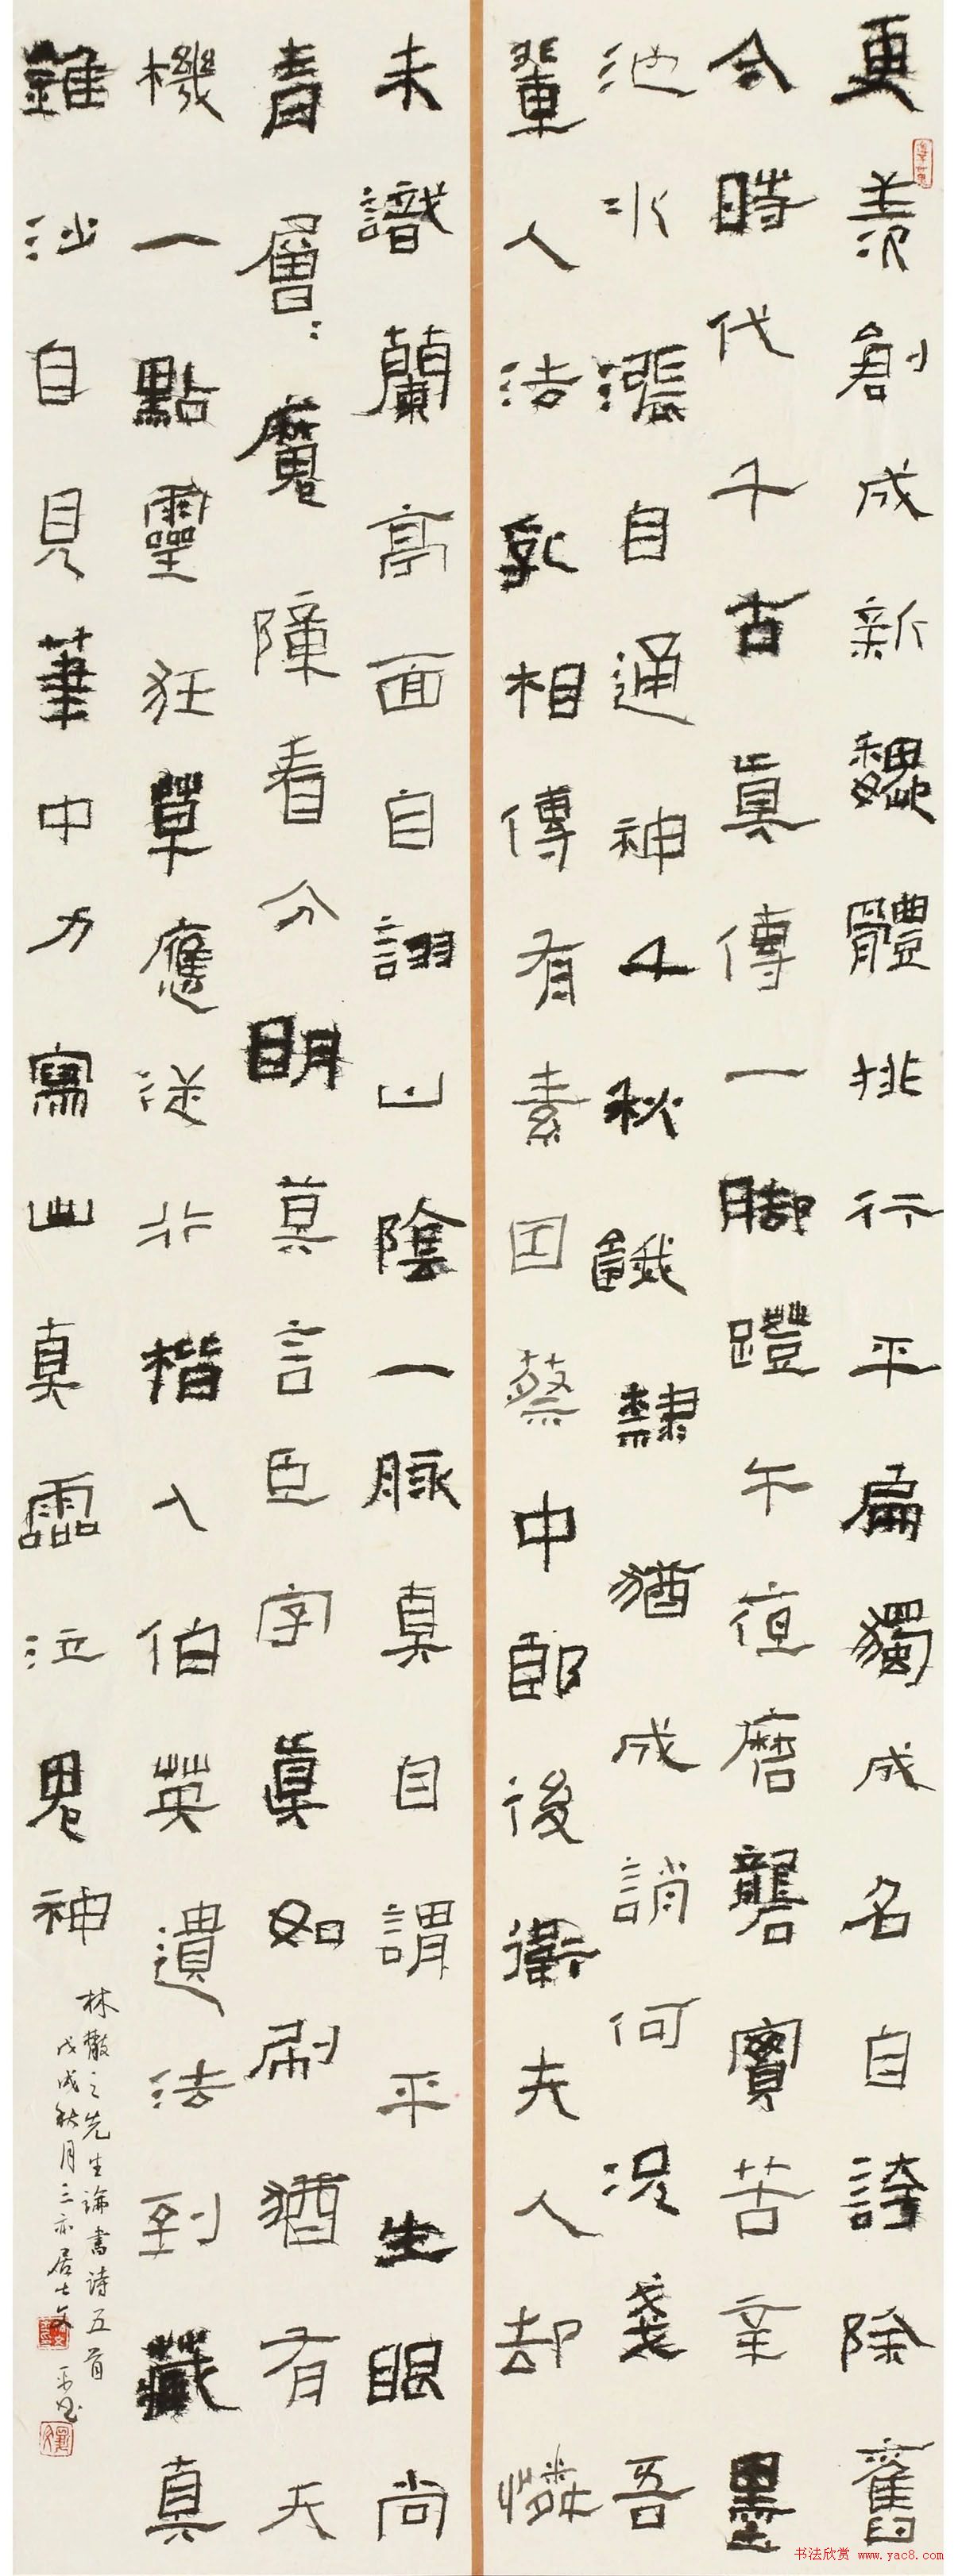 更羨創成新魏體排行平扁獨成名自誇除舊
今時代千古真傳一脚蹬午夜磨礱實苦辛墨
池水漲自通神千秋餓隸猶成誚何況戔戔吾
輩人法乳相傳有素因蔡中郎後衛夫人却憐
未識蘭亭面自詡山陰一脉真自謂平生眼尚
青層：魔障看分明莫言臣字真如刷猶有天
機一點靈狂草應從非楷入伯英遺法到藏真
錐沙自見筆中力寫出真靈泣鬼神
林散之先生論書詩五首
戊戌秋月三亦居士文
书法欣赏 www.yac8.com